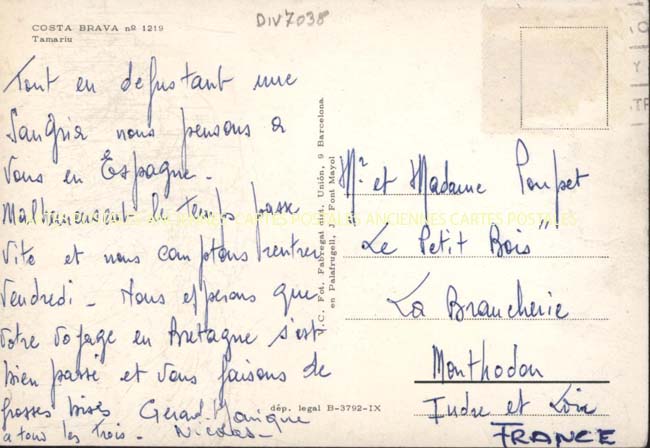 DIV7038
COSTA BRAVA nº 1219
Tamariu
Tout en dégustant une
Sangria nous pensons à
Vous en Espagne -
Malheureusement le temps passe
vite et nous comptons rentrer
Vendredi - Nous espérons que
votre voyage en Bretagne s'est
bien passé et vous faisons de
grosses bises Gérard Monique
à tous les trois - Nicolas -
I.C. Fot. Fabregat del Unión, 9 Barcelona
en Palafrugell, J. Font Mayol
dép. legal B-3792-IX
Mr et Madame Poupet
"Le Petit Bois"
La Brancherie
Monthodon
Indre et Loire
FRANCE
CARTES POSTALES ANCIENNES CARTES POSTALES